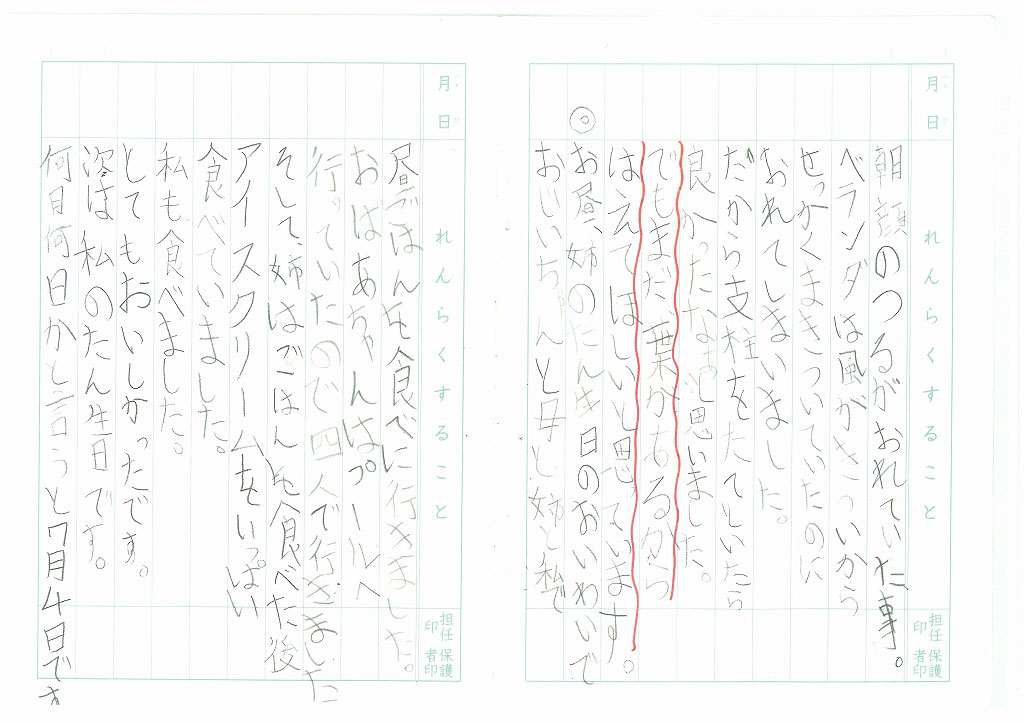 月 日
れんらくすること
担任印
保護者印
朝顔のつるがおれていた事。
ベランダは風がきついから
せっかくまきついていたのに
おれてしまいました。
だから支柱をたてていたら
良かったなぁと思いました。
でもまだ、葉があるから
はえてほしいと思っています。
◎お昼、姉のたん生日のおいわいで
おじいちゃんと母と姉と私で
月 日
れんらくすること
担任印
保護者印
昼ごはんを食べに行きました。
おばあちゃんはプールへ
行っていたので四人で行きました
そして、姉はごはんを食べた後
アイースクリームをいっぱい
食べていました。
私も食べました。
とてもおいしかったです。
次は私のたん生日です。
何月何日かと言うと7月4日です